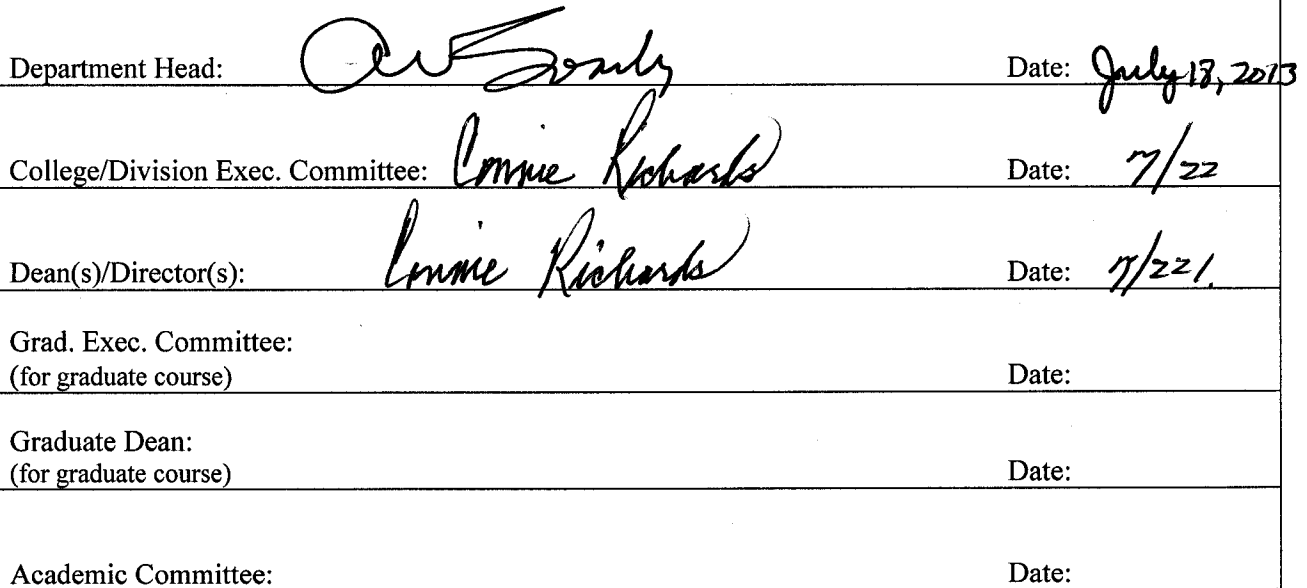 Department Head: Date: July 18, 2013
College/Division Exec. Committee: Connie Richards Date: 7/22
Dean(s)/Director(s): Connie Richards Date: 7/22/.
Grad. Exec. Committee:
(for graduate course) Date:
Graduate Dean:
(for graduate course) Date:
Academic Committee: Date: